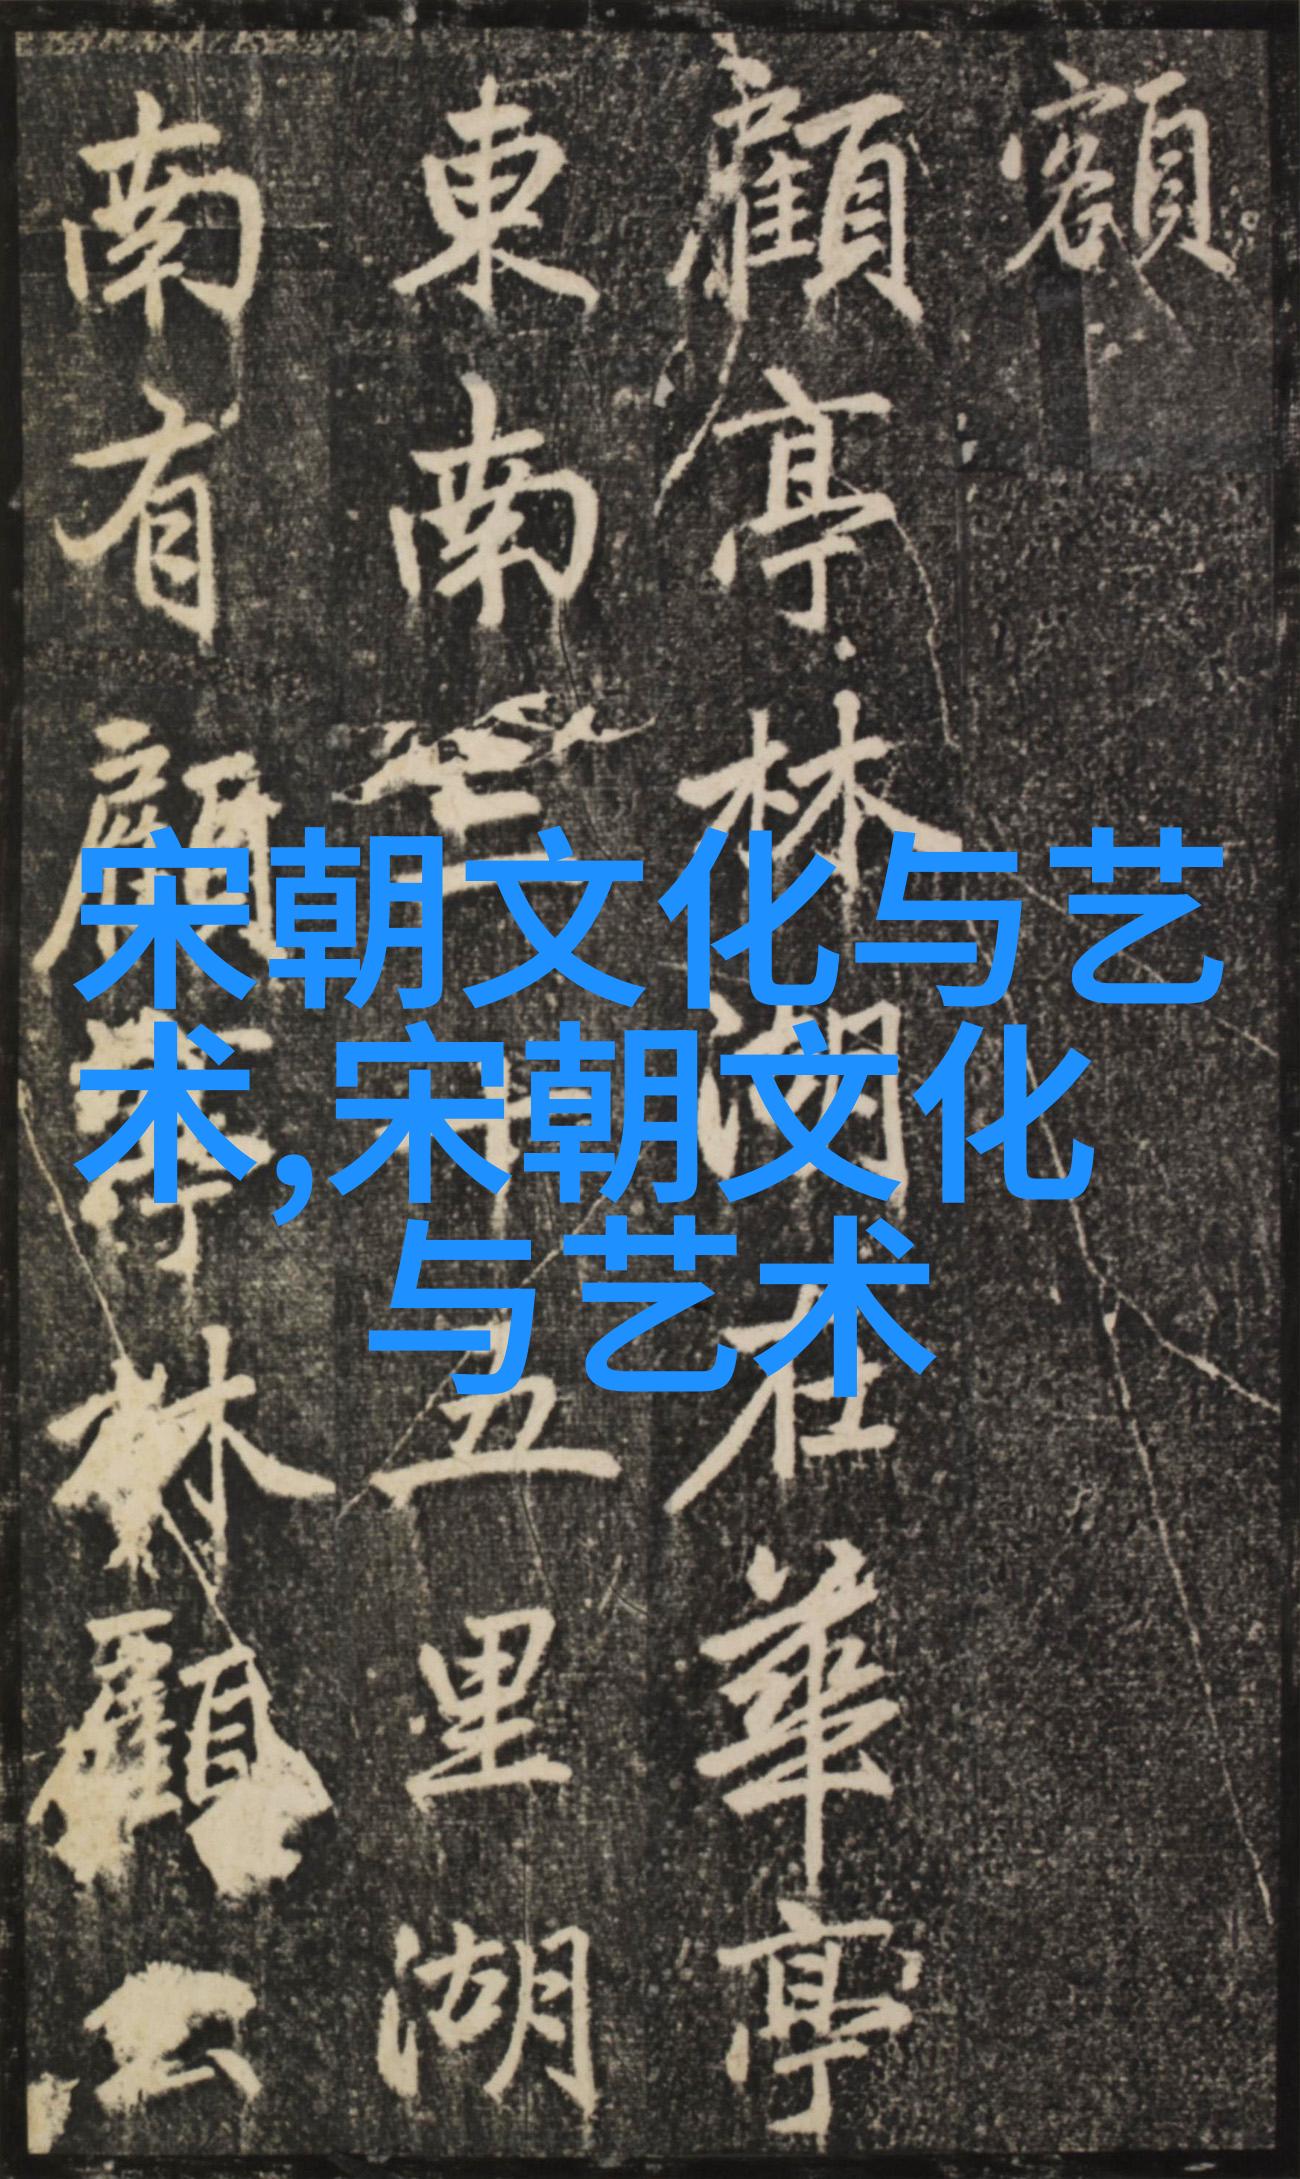 宋朝文化与艺
术,宋朝文化
与艺术
額
顧亭林湖在華亭
東南三十五里湖
南有顧亭林顧公